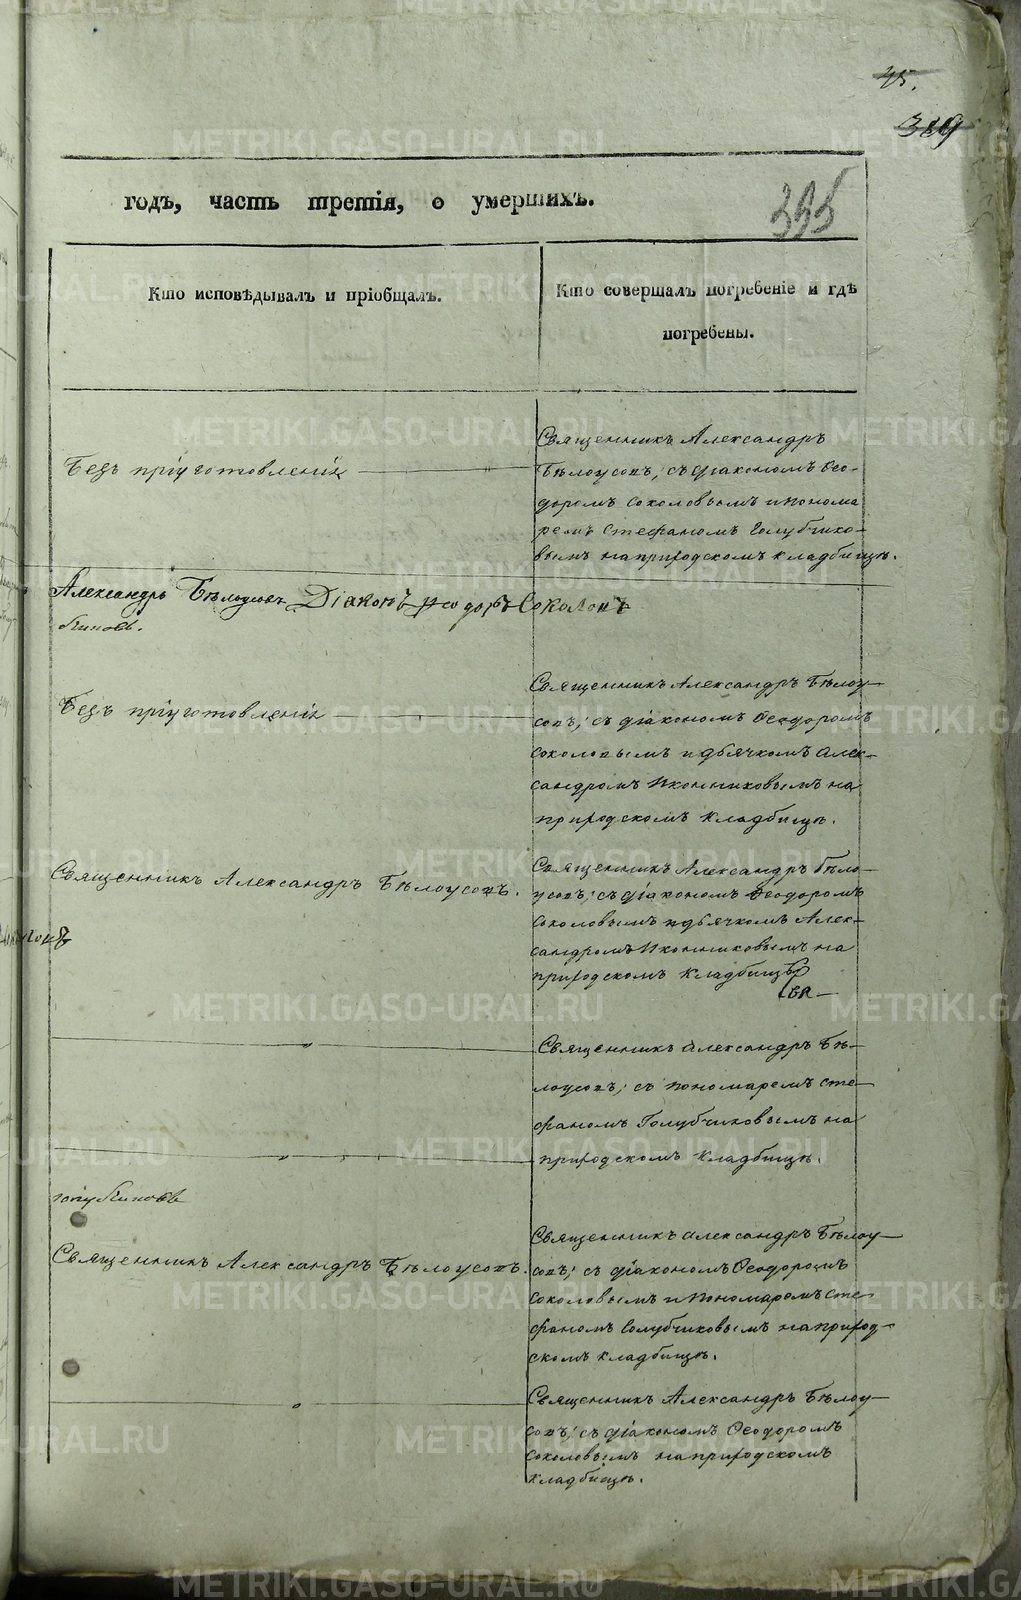 45.
389
395
годъ, часть третія, о умершихъ.
Кто исповѣдывалъ и пріобщалъ.
Кто совершалъ погребеніе и гдѣ
погребены.
Безъ пріуготовленія
Священникъ Александръ
Бѣлоусовъ, съ діакономъ Ѳео-
доромъ Соколовымъ и понома
ремъ Стефаномъ Голубчико-
вымъ на приходскомъ кладбищѣ.
Александръ Бѣлоусовъ Діаконъ Ѳеодоръ Соколовъ
Безъ пріуготовленія
Священникъ Александръ Бѣлоу-
совъ, съ діакономъ Ѳеодоромъ
Соколовымъ и дьячкомъ Алек-
сандромъ Иконниковымъ на
приходскомъ кладбищѣ.
Священникъ Александръ Бѣлоусовъ.
Священникъ Александръ Бѣло-
усовъ, съ діакономъ Ѳеодоромъ
Соколовымъ и дьячкомъ Алек-
сандромъ Иконниковымъ на
приходскомъ кладбищѣ
Священникъ Александръ Бѣ-
лоусовъ, съ пономаремъ Сте-
фаномъ Голубчиковымъ на
приходскомъ кладбищѣ.
Священникъ Александръ Бѣлоусовъ.
Священникъ Александръ Бѣлоу-
совъ, съ діакономъ Ѳеодоромъ
Соколовымъ и пономаремъ Сте-
фаномъ Голубчиковымъ на приход-
скомъ кладбищѣ.
Священникъ Александръ Бѣлоу-
совъ, съ діакономъ Ѳеодоромъ
Соколовымъ на приходскомъ
кладбищѣ.
METRIKI.GASO-URAL.RU